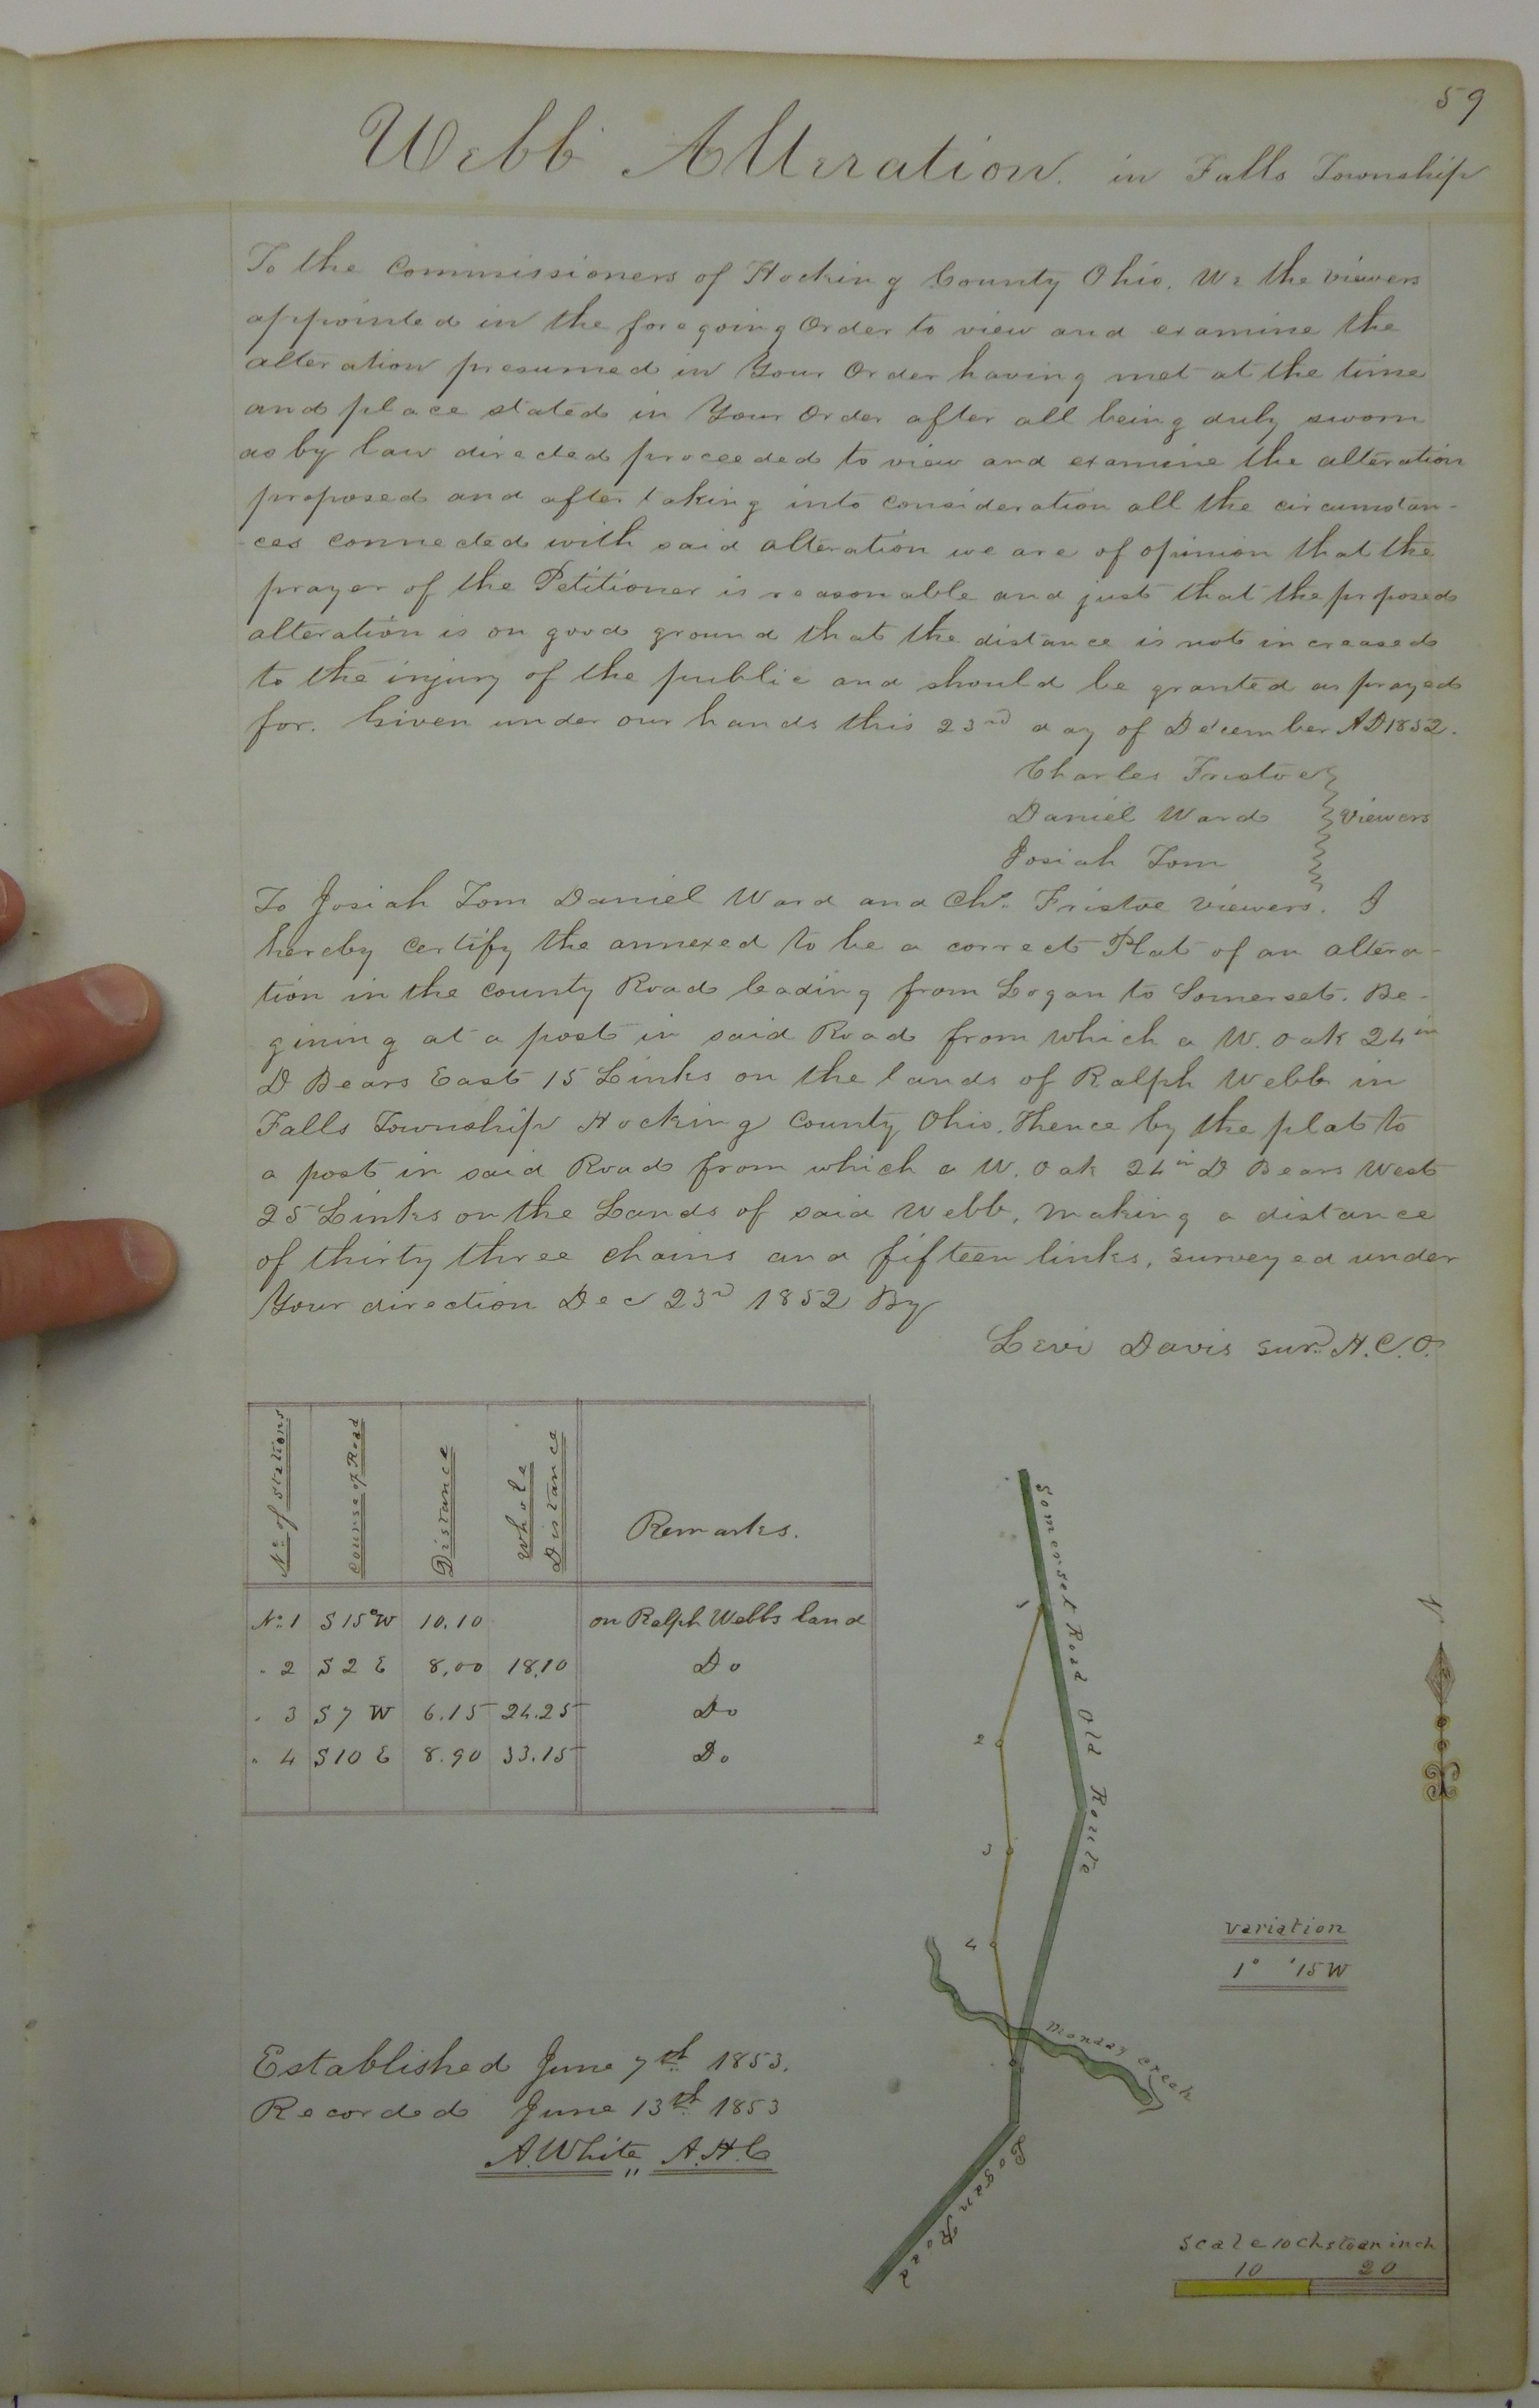 59
Webb Alteration in Falls Township
To the Commissioners of Hocking County Ohio. We the viewers
appointed in the foregoing Order to view and examine the
alteration presumed in Your Order having met at the time
and place stated in Your Order after all being duly sworn
as by law directed proceeded to view and examine the alteration
proposed and after taking into consideration all the circumstan-
-ces connected with said alteration we are of opinion that the
prayer of the Petitioner is reasonable and just that the proposed
alteration is on good ground that the distance is not increased
to the injury of the public and should be granted as prayed
for. Given under our hands this 23rd day of December AD 1852.
Charles Fristoe
Daniel Ward viewers
Josiah Tom
To Josiah Tom Daniel Ward and Chs. Fristoe viewers. I
hereby certify the annexed to be a correct Plat of an altera-
tion in the county Road leading from Logan to Somerset. Be-
gining at a post in said Road from which a W. oak 24 in
D Bears East 15 Links on the lands of Ralph Webb in
Falls Township Hocking County Ohio. Thence by the plat to
a post in said Road from which a W. oak 24 in D Bears West
25 Links on the Lands of said Webb, making a distance
of thirty three chains and fifteen links, surveyed under
Your direction Dec 23d 1852 By
Levi Davis Sur. H.C.O.
No. of stations Course of Road Distance Whole Distance Remarks.
No. 1 S 15° W 10.10 on Ralph Webbs land
" 2 S 2 E 8,00 18,10 Do
" 3 S 7 W 6.15 24.25 Do
" 4 S 10 E 8.90 33.15 Do
Somerset Road Old Route
1
2
3
4
N
variation
1° '15 W
Monday Creek
Logan Road
Established June 7th 1853.
Recorded June 13th 1853
A. White,, A.H.C
Scale 10 chs to an inch
10 20